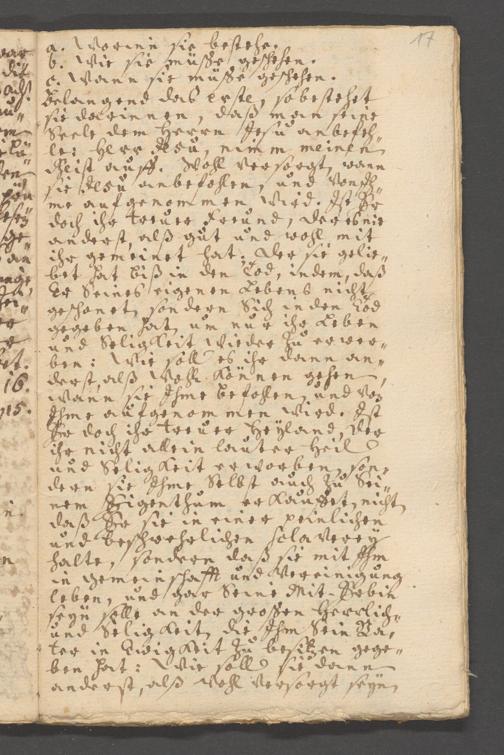 17
a. Worinn sie bestehe.
b. Wie sie müße geschehen.
c. Wann sie müße geschehen.
Belangend das erste, so bestehet
sie darinnen, daß man seine
Seele dem Herrn Jesu anbefeh-
le: Herr Jesu, nimm meinen
Geist auff. Wohl versorgt, wann
sie Jesu anbefohlen, und von Ih-
me aufgenommen wird. Ist Er
doch ihr treuer Freund, der es nie
anderst, alß gut und wohl mit
ihr gemeinet hat: Der sie gelie-
bet hat biß in den Tod, indem, daß
Er Seines eigenen Lebens nicht
geschonet, sondern Sich in den Tod
gegeben hat, um nur ihr Leben
und Seligkeit wieder zu erwer-
ben: Wie soll es ihr dann an-
derst, alß wohl können gehen,
wann sie Ihme befohlen, und von
Ihme aufgenommen wird. Ist
Er doch ihr treuer Heyland, Der
ihr nicht allein lauter Heil
und Seligkeit erworben, son-
dern sie Ihme Selbst auch zu Sei-
nem Eigenthum erkauffet, nicht
daß Er sie in einer peinlichen
und beschwehrlichen Sclaverey
halte, sondern daß sie mit Ihm
in Gemeinschafft und Vereinigung
leben, und gar Seine Mit-Erbin
seyn solle an der großen Herrlich-
und Seligkeit, die Ihm Sein Va-
ter in Ewigkeit zu besitzen gege-
ben hat: Wie soll sie dann
anderst, alß wohl versorgt seyn,
16.
15.